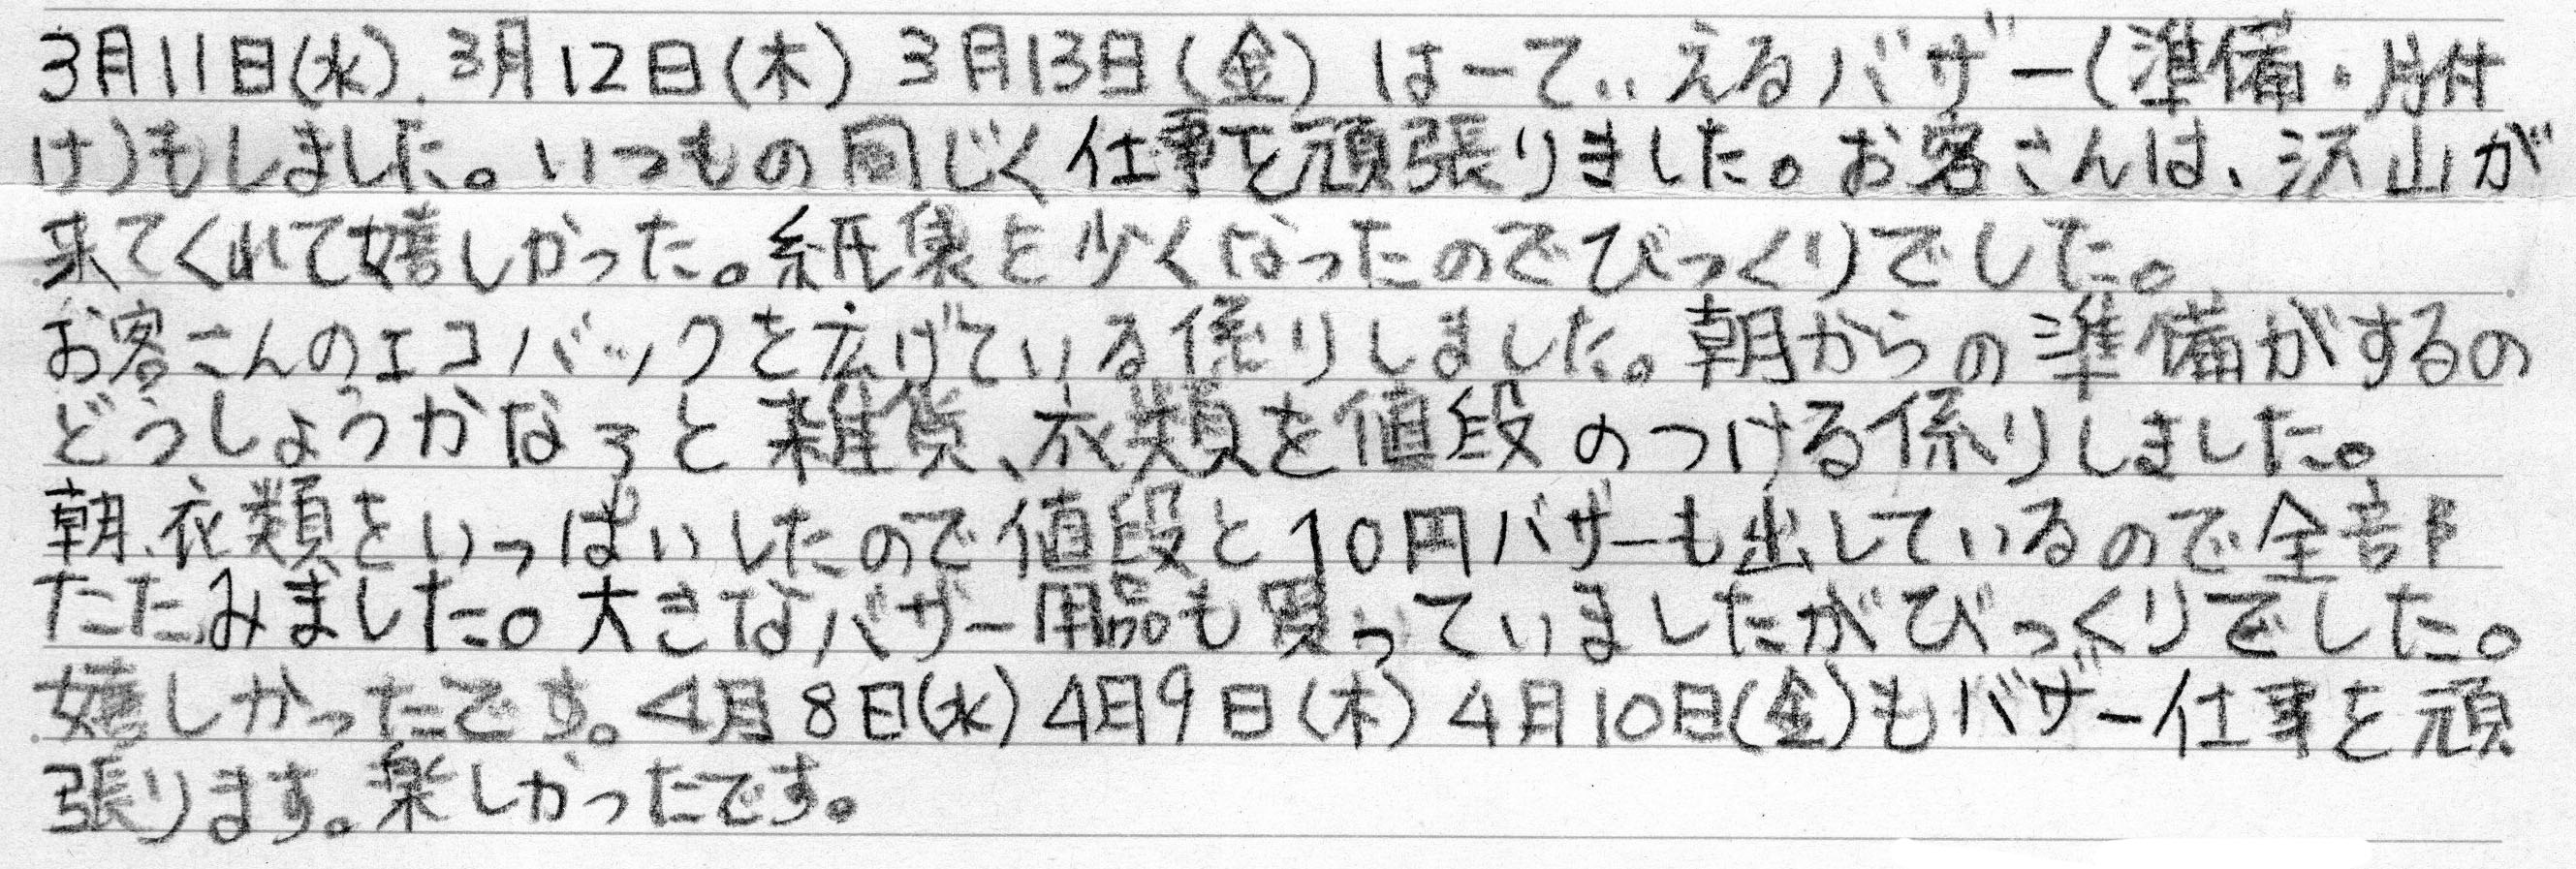 3月11日(水).3月12日(木) 3月13日(金) はーて..えるバザー(準備・片付
け)もしました。いつもの同じく仕事を頑張りました。お客さんは、沢山が
来てくれて嬉しかった。紙袋を少くなったのでびっくりでした。
お客さんのエコバックを広げている係りしました。朝からの準備がするの
どうしょうかなろと雑貨、衣類を値段のつける係りしました。
朝、衣類をいっぱいしたので値段と10円バザーも出しているので全部
たたみました。大きなバザー用品も買っていましたがびっくりでした。
嬉しかったです。4月8日(水)4月9日(木) 4月10日(金)もバザー仕事を頑
張ります。楽しかったです。